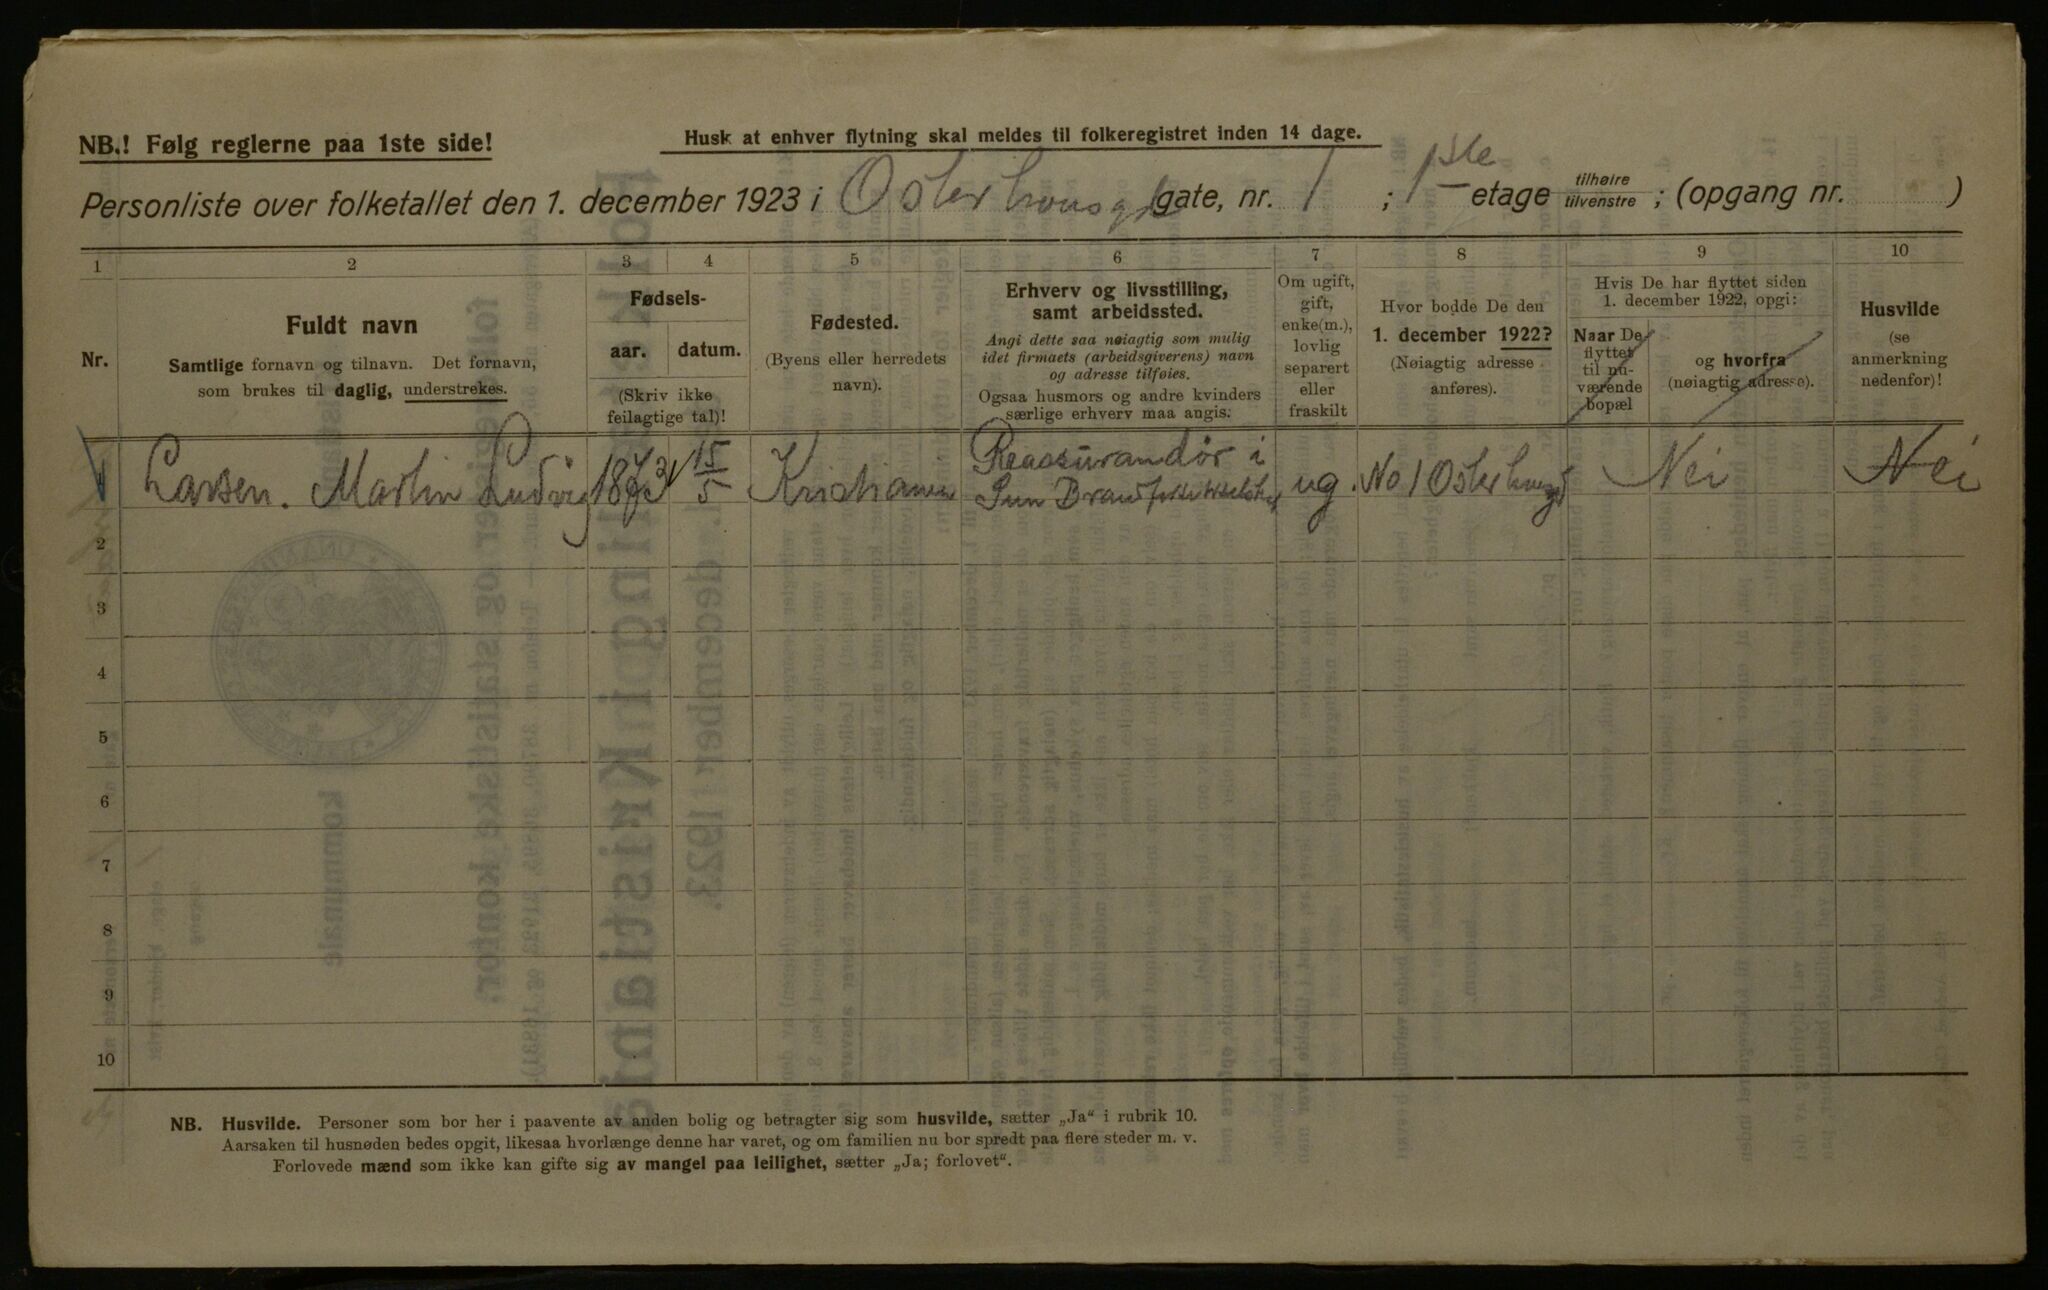 NB.! Følg reglerne paa 1ste side!
Husk at enhver flytning skal meldes til folkeregistret inden 14 dage.
Personliste over folketallet den 1. december 1923 i Osterhausgt gate, nr. 1 ; 1ste etage tilhøire tilvenstre ; (opgang nr. )
1 2 3 4 5 6 7 8 9 10
Nr.
Fuldt navn
Samtlige fornavn og tilnavn. Det fornavn,
som brukes til daglig, understrekes.
Fødsels-
aar. datum.
(Skriv ikke
feilagtige tal)!
Fødested.
(Byens eller herredets
navn).
Erhverv og livsstilling,
samt arbeidssted.
Angi dette saa nøiagtig som mulig
idet firmaets (arbeidsgiverens) navn
og adresse tilføies.
Ogsaa husmors og andre kvinders
særlige erhverv maa angis.
Om ugift,
gift,
enke(m.),
lovlig
separert
eller
fraskilt
Hvor bodde De den
1. december 1922?
(Nøiagtig adresse
anføres).
Hvis De har flyttet siden
1. december 1922, opgi:
Naar De
flyttet
til nu-
værende
bopæl
og hvorfra
(nøiagtig adresse).
Husvilde
(se
anmerkning
nedenfor)!
1 Larsen. Martin Ludvig 1873 15/5 Kristiania Reassurandør i ug. No 1 Osterhausgt Nei Nei
Sun
2
3
4
5
6
7
8
9
10
NB. Husvilde. Personer som bor her i paavente av anden bolig og betragter sig som husvilde, sætter „Ja“ i rubrik 10.
Aarsaken til husnøden bedes opgit, likesaa hvorlænge denne har varet, og om familien nu bor spredt paa flere steder m. v.
Forlovede mænd som ikke kan gifte sig av mangel paa leilighet, sætter „Ja; forlovet“.